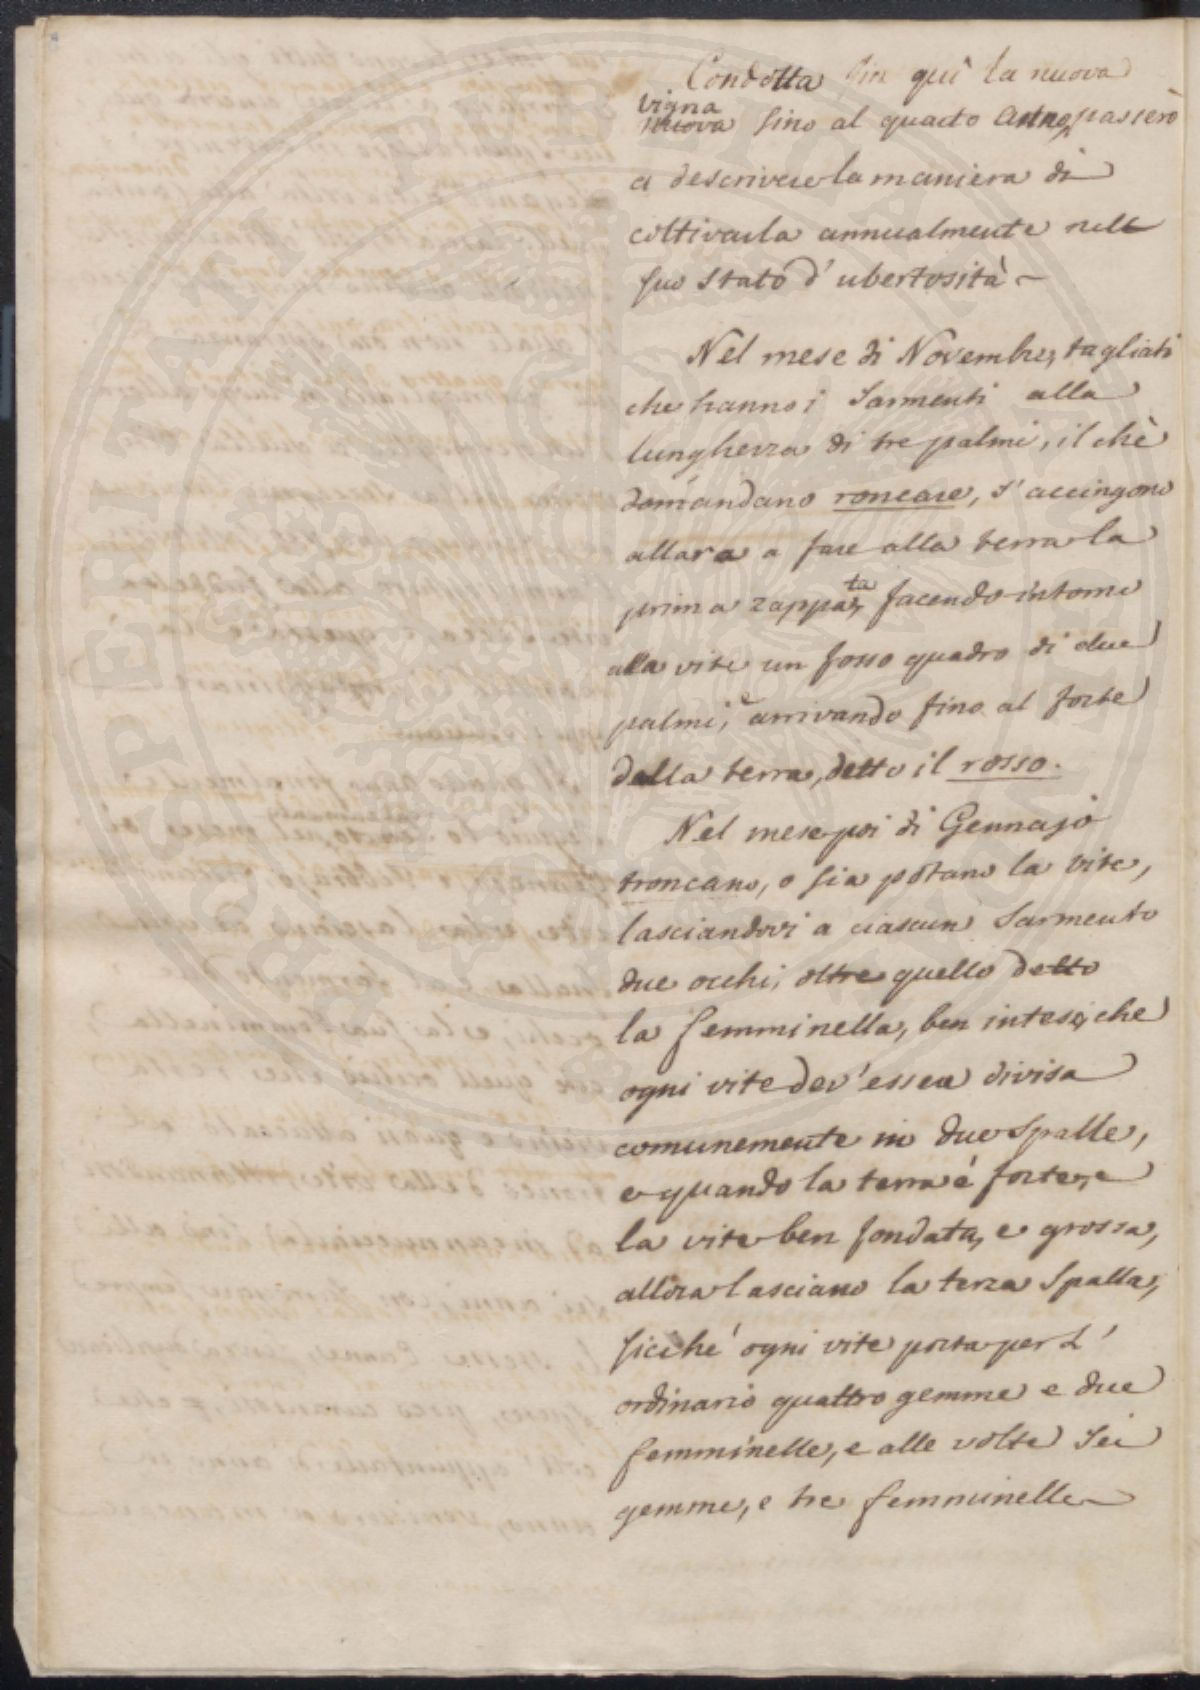 Condotta sin quì la nuova
vigna
nuova sino al quarto Anno, passerò
a descrivere la maniera di
coltivarla annualmente nell
suo stato d' ubertosità -
Nel mese di Novembre, tagliati
che hanno i Sarmenti alla
lunghezza di tre palmi, il chè
domandano roncare, s' accingono
allara a fare alla terra la
prima zappata, facendo intorno
alla vite un fosso quadro di due
palmi, e arrivando fino al forte
della terra, detto il rosso.
Nel mese poi di Gennajo
troncano, o sia potano la vite,
lasciandovi a ciascun Sarmento
due occhi, oltre quello detto
la femminella, ben inteso, che
ogni vite dev' essere divisa
comunemente in due Spalle,
e quando la terra é forte, e
la vite ben fondata, e grossa,
allora lasciano la terza Spalla,
sicché ogni vite porta per l'
ordinario quattro gemme e due
femminelle, e alle volte Sei
gemme, e tre femminelle